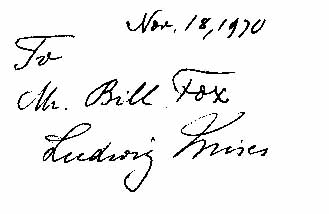 Nov. 18, 1970
To
Mr. Bill Fox
Ludwig Mises